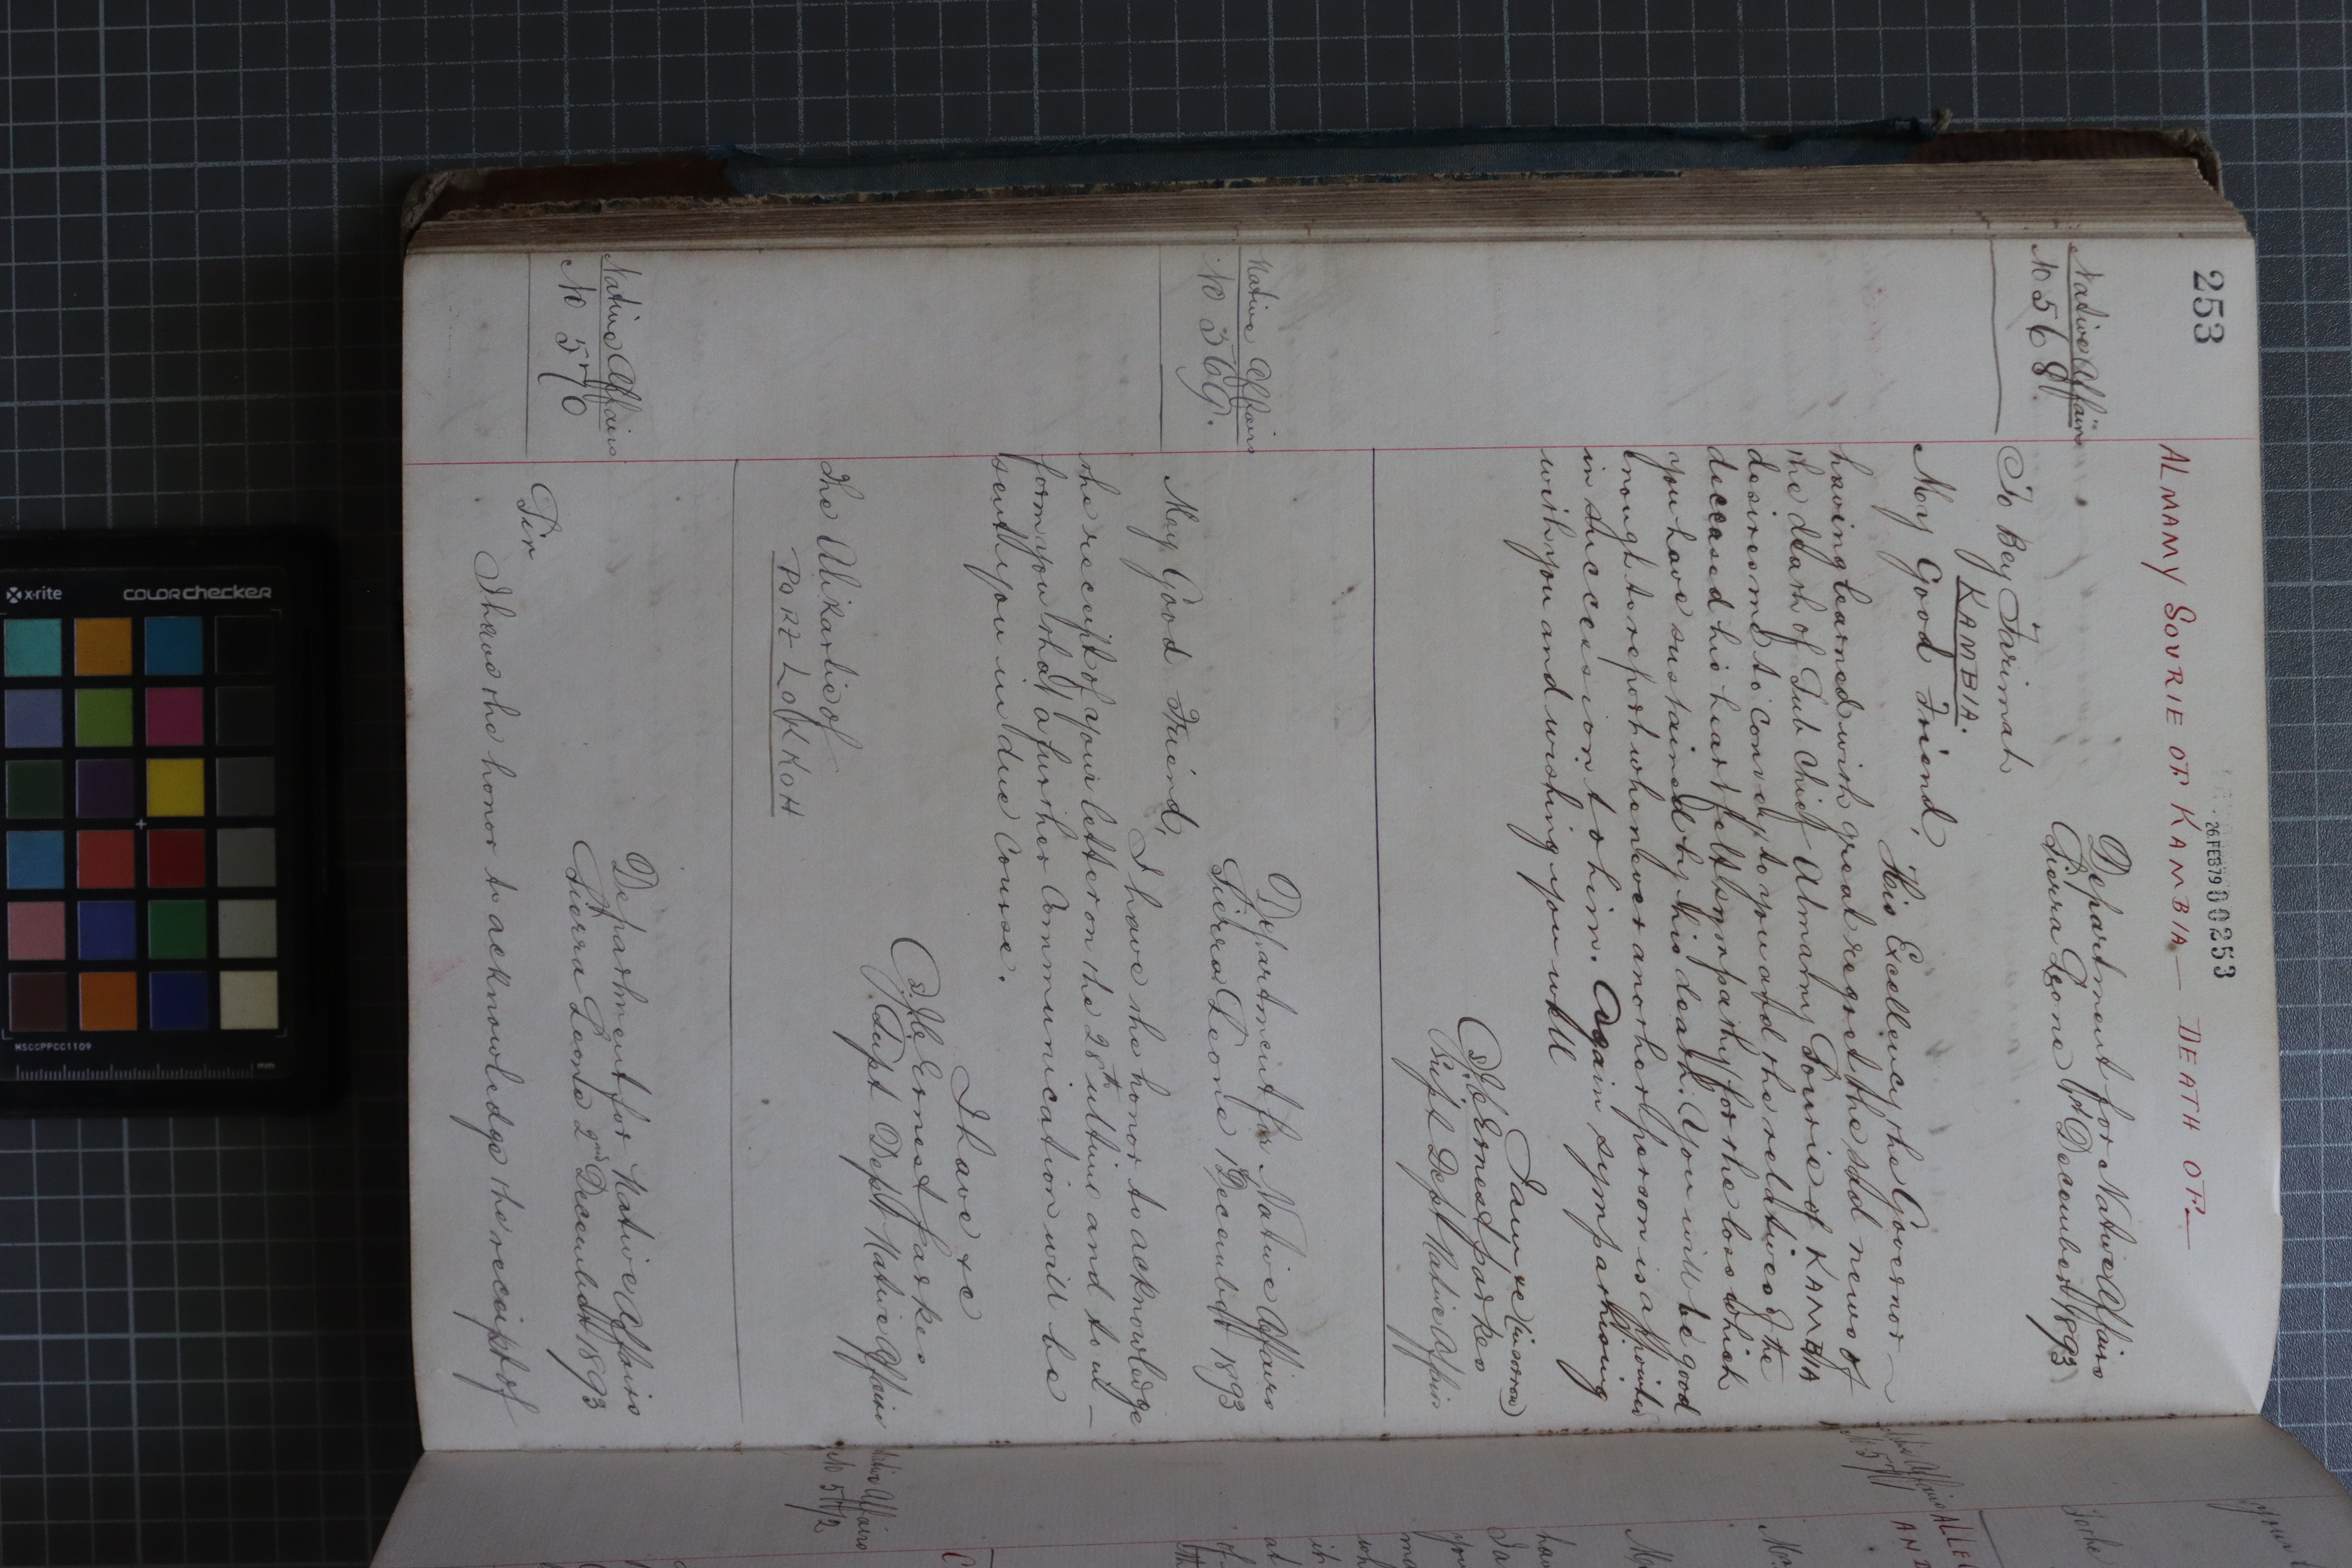 253
26 FEB 79 00253
ALMAMY SOURIE OF KAMBIA — DEATH OF —
Native Affairs
No 568
Department for Native Affairs
Sierra Leone 1st December 1893
To Bey Farimah
KAMBIA
My Good Friend,
His Excellency the Governor —
having learned with great regret the sad news of
the death of Sub Chief Almamy Sourie of KAMBIA
desires me to convey to you and the relatives of the
deceased his heart felt sympathy for the loss which
you have sustained by his death. You will be good
enough to report whenever another person is appointed
in succession to him. Again sympathising
with you and wishing you well
I am &c
(Sd) J. C. Ernest Parkes
Supt Dept Native Affairs
Native Affairs
No 569.
Department for Native Affairs
Sierra Leone 1st December 1893
My Good Friend,
I have the honor to acknowledge
the receipt of your letter on the 28th ultimo and to in-
form you that a further Communication will be
sent you in due Course.
I have &c
(Sd) J. C. Ernest Parkes
Supt Dept Native Affairs
The Alikarlie of
PORT LOKKOH
Native Affairs
No 570
Department for Native Affairs
Sierra Leone 2nd December 1893
Sir
I have the honor to acknowledge the receipt of
Native Affairs
No 571
Native Affairs
No 572
x-rite
colorchecker
MSCCPPCC1109
mm